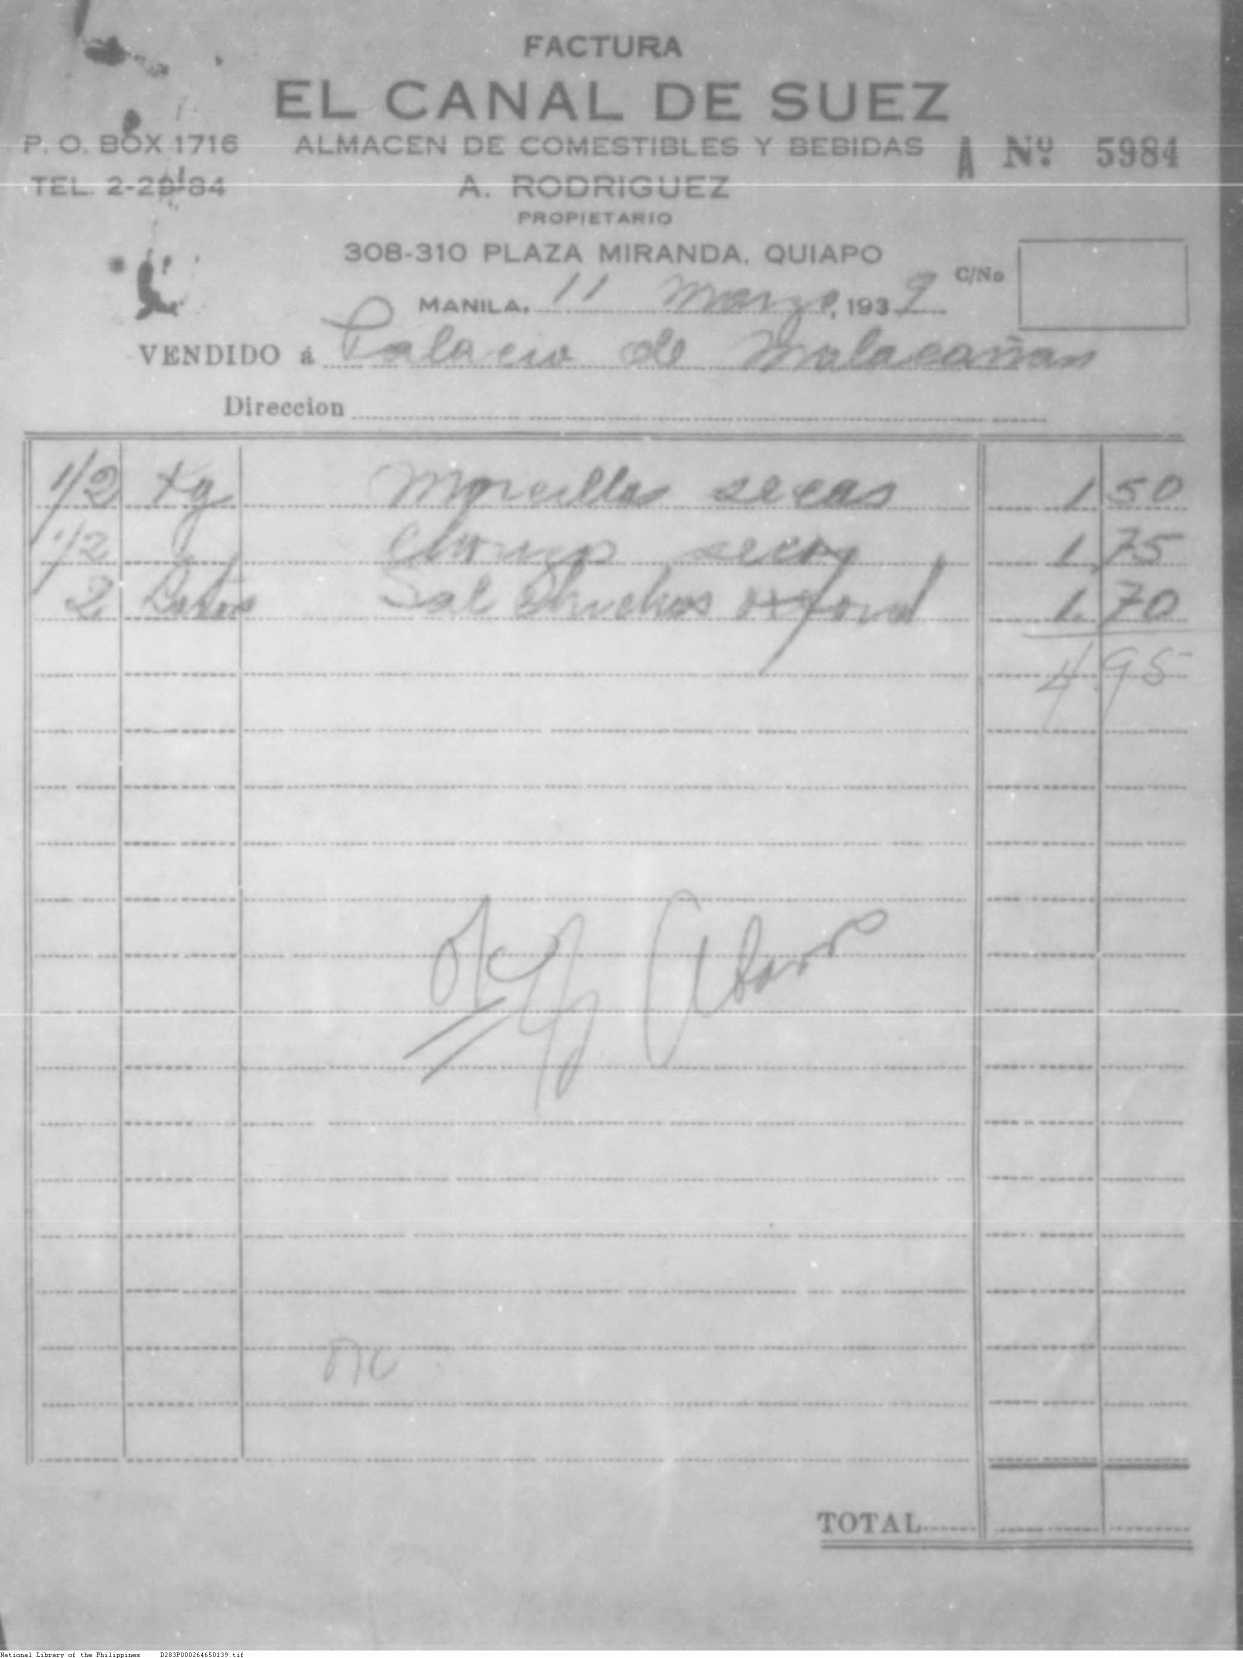 FACTURA
EL CANAL DE SUEZ
P. O. BOX 1716 ALMACEN DE COMESTIBLES Y BEBIDAS A Nº 5984
TEL. 2-29-84 A. RODRIGUEZ
PROPIETARIO
308-310 PLAZA MIRANDA, QUIAPO
C/No
MANILA, 11 Marzo, 1939
VENDIDO á Palacio de Malacañan
Direccion
1/2 Kg Morcillas secas 1 50
1/2 Chorizo secos 1 75
2 Latas Salchichas Oxford 1. 70
4 95
OK
OK
TOTAL
National Library of the Philippines D283P000264650139.tif